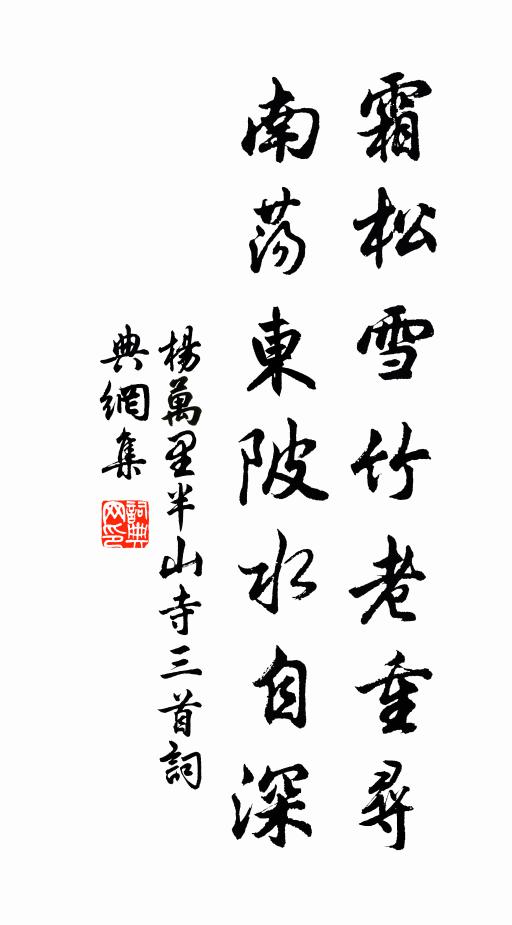 霜松雪竹老重尋
南蕩東陂水自深
楊萬里半山寺三首詞
典網集
詞典网印